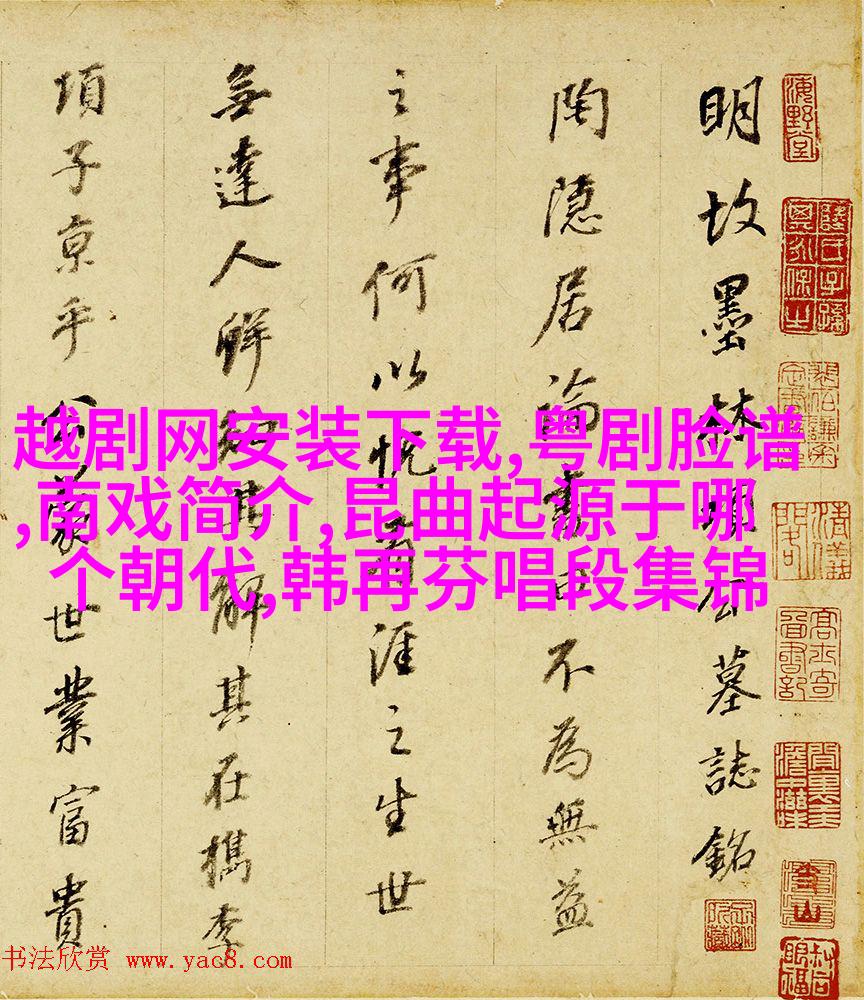 海野堂
明故墨林項公墓誌銘
陶隱居論書不為無益
之事何以悅有涯之生世
無達人鮮知其解其在檇李
項子京乎公蒙世業富貴
越剧网安装下载,粤剧脸谱
,南戏简介,昆曲起源于哪
个朝代,韩再芬唱段集锦
书法欣赏 www.yac8.com